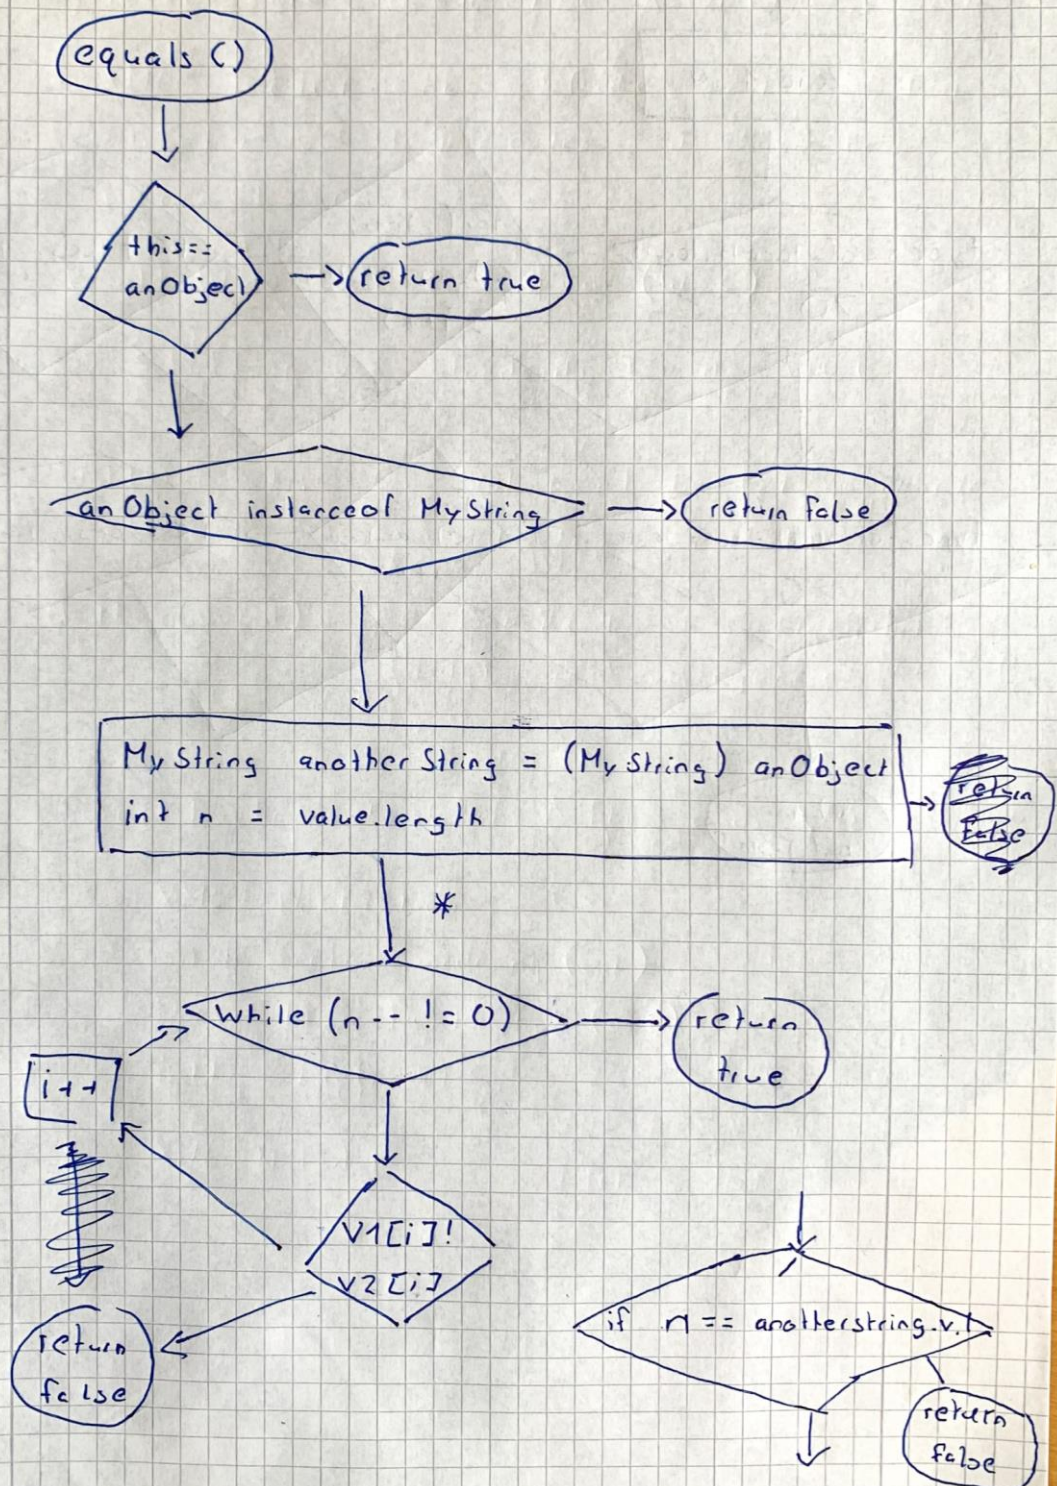 equals ()
this==
anObject
return true
anObject instanceof MyString
return false
MyString anotherString = (MyString) anObject
int n = value.length
return
false
*
while (n-- != 0)
return
true
i++
V1[i]!
v2[i]
return
false
if n == anotherstring.v.l
return
false